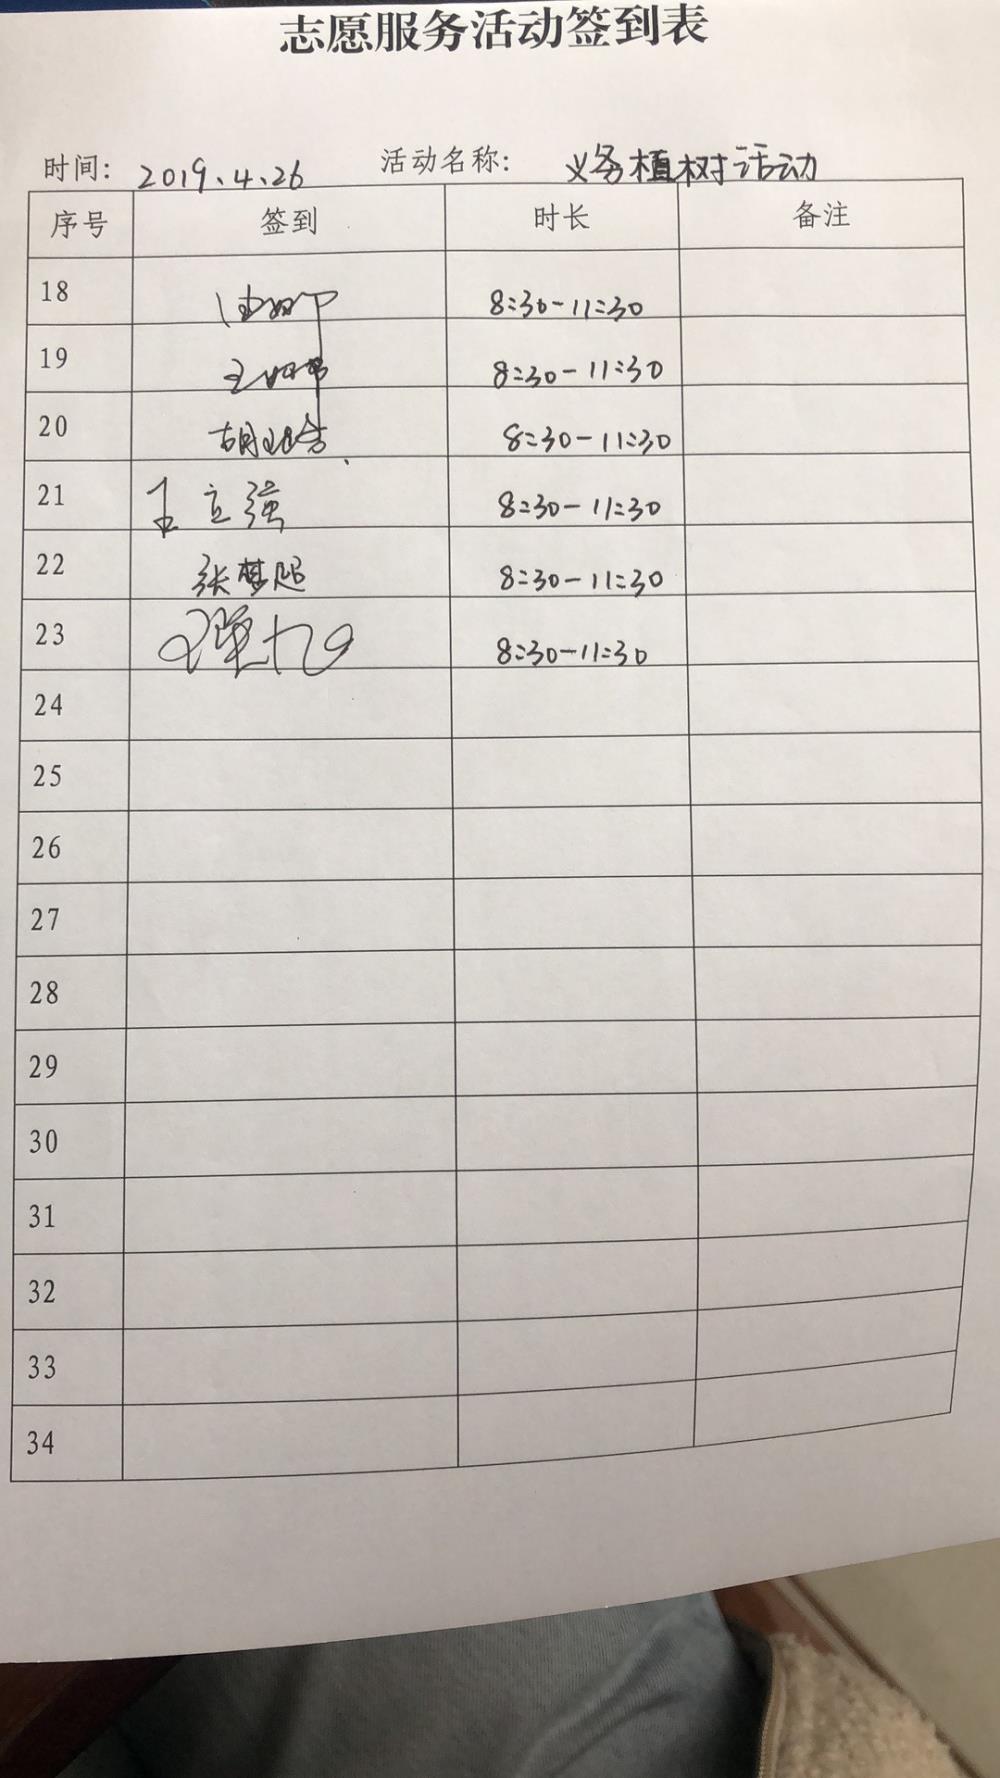 志愿服务活动签到表
时间: 2019.4.26 活动名称: 义务植树活动
序号 签到 时长 备注
18 8:30-11:30
19 8:30-11:30
20 8:30-11:30
21 王立强 8:30-11:30
22 张梦超 8:30-11:30
23 8:30-11:30
24
25
26
27
28
29
30
31
32
33
34